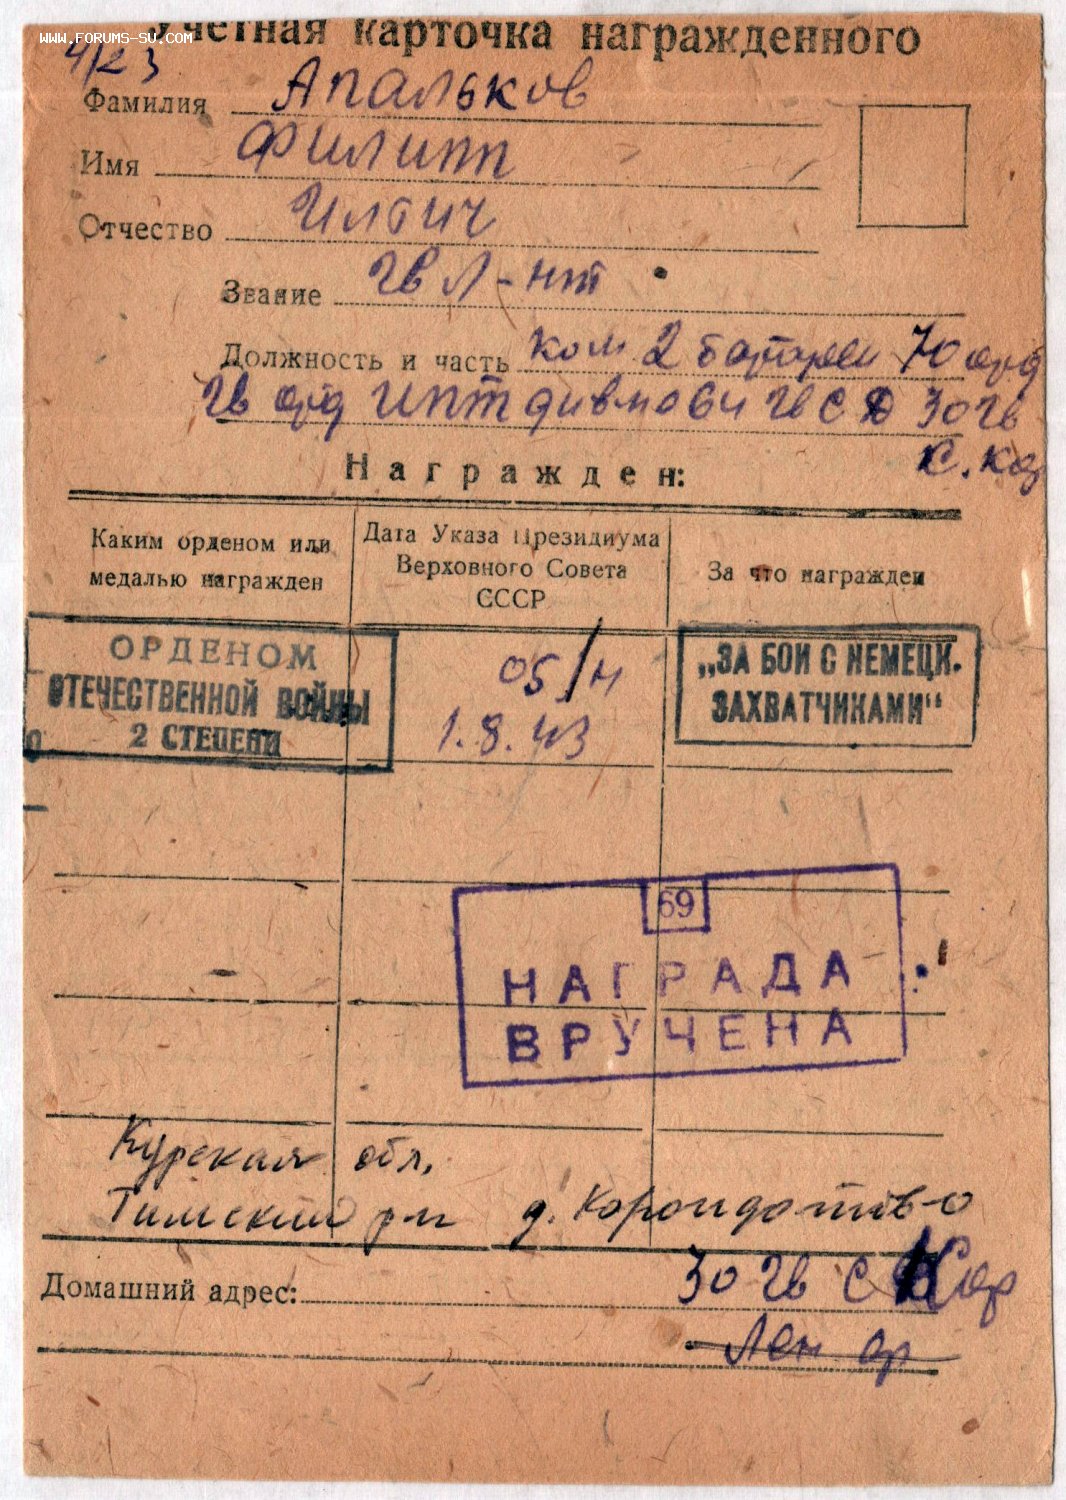 www.forums-su.com
Учетная карточка награжденного
4/23
Фамилия Апальков
Имя Филипп
Отчество Ильич
Звание гв л-нт
Должность и часть ком 2 батареи 70 орд
гв орд иптдивна 63й гв СД 30 гв
с. кор
Награжден:
Каким орденом или медалью награжден
Дата Указа Президиума Верховного Совета СССР
За что награжден
ОРДЕНОМ
ОТЕЧЕСТВЕННОЙ ВОЙНЫ
2 СТЕПЕНИ
05/н
1.8.43
„ЗА БОИ С НЕМЕЦК.
ЗАХВАТЧИКАМИ“
69
НАГРАДА
ВРУЧЕНА
Курская обл,
Тимский р-н д.
Домашний адрес: 30 гв с Кор
Лен фр